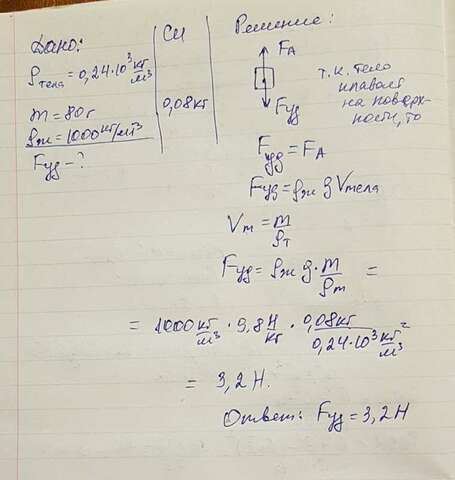 Дано:
ρтела = 0,24·10³ кг/м³
m = 80 г
ρж = 1000 кг/м³
Fуд - ?
СИ
0,08 кг
Решение:
FA
Fуд
т.к. тело
плавает
на поверх-
ности, то
Fуд = FA
Fуд = ρж g Vтела
Vт = m/ρт
Fуд = ρж g · m/ρт =
= 1000 кг/м³ · 9,8 Н/кг · 0,08 кг/0,24·10³ кг/м³ =
= 3,2 Н.
Ответ: Fуд = 3,2 Н